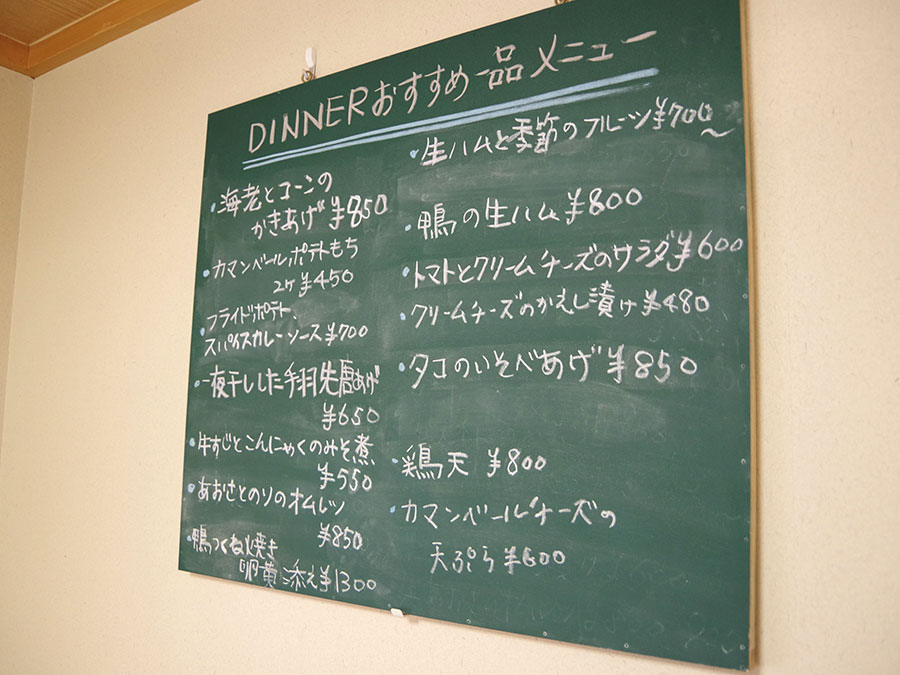 DINNERおすすめ一品メニュー
・海老とコーンの
かきあげ ¥850
・カマンベールポテトもち
2ヶ ¥450
・フライドポテト、
スパイスカレーソース ¥700
・一夜干しした手羽先唐あげ
¥650
・牛すじとこんにゃくのみそ煮
¥550
・あおさとのりのオムレツ
¥850
・鴨つくね焼き
卵黄添え ¥1300
・生ハムと季節のフルーツ ¥700
〜
・鴨の生ハム ¥800
・トマトとクリームチーズのサラダ ¥600
・クリームチーズのかえし漬け ¥480
・タコのいそべあげ ¥850
・鶏天 ¥800
・カマンベールチーズの
天ぷら ¥600